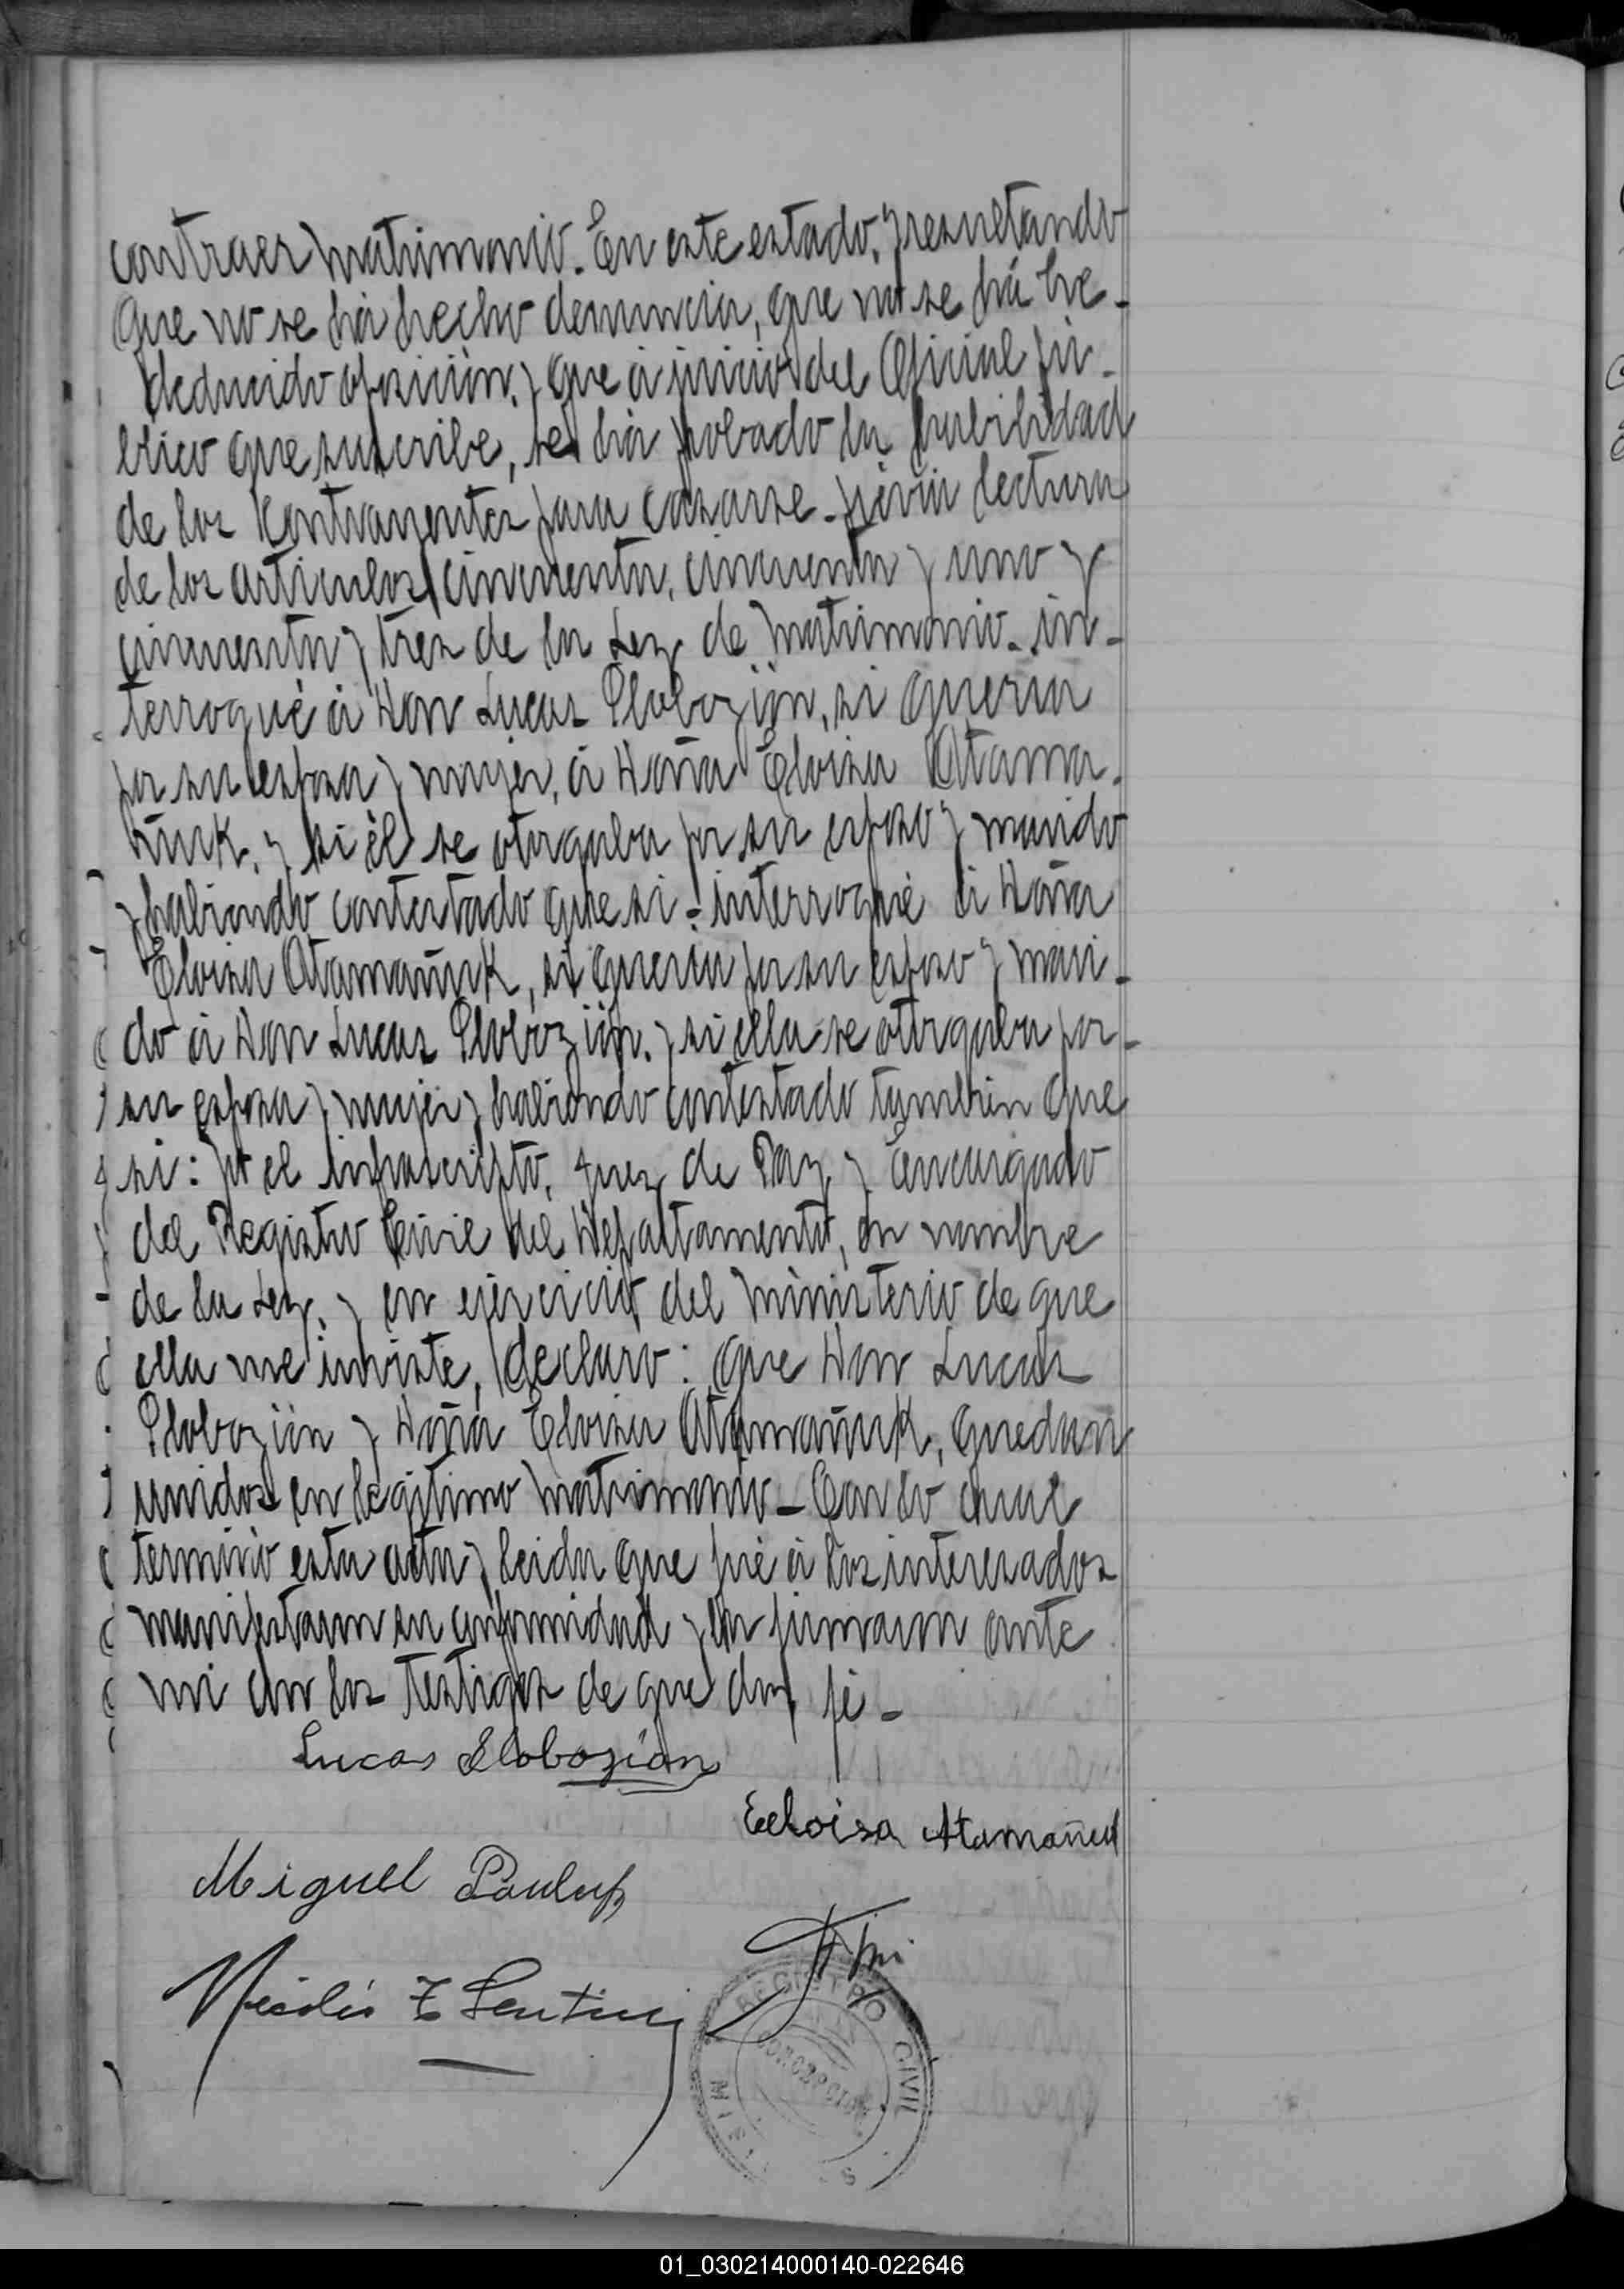 contraer matrimonio. En este estado, y resultando
que no se há hecho denuncia, que no se há he-
deducido oposición, y que á juicio del Oficial pú-
blico que suscribe, se há probado la habilidad
de los Contrayentes para casarse - prévia lectura
de los articulos cincuenta, cincuenta y uno y
cincuenta y tres de la Ley de Matrimonio - in-
terrogué á Don Lucas Slobozián, si queria
por su esposa y mujer, á Doña Eloisa Atama-
ñuk, y si él se otorgaba por su esposo y marido
y habiendo contestado que si - interrogué á Doña
Eloisa Atamañuk, si queria por su esposo y mari-
do á Don Lucas Slobozián, y si ella se otorgaba por
su esposa y mujer y habiendo contestado tambien que
si: yo el infrascripto, Juez de Paz y Encargado
del Registro Civil del Departamento, en nombre
de la Ley, y en ejercicio del ministerio de que
ella me inviste, declaro: que Don Lucas
Slobozián y Doña Eloisa Atamañuk, quedan
unidos en legitimo matrimonio - Con lo cual
terminó esta acta y leida que fué á los interesados
manifestaron su conformidad y la firmaron ante
mi con los testigos de que doy fé -
Lucas Slobozian
Eeloisa Atamañuk
Miguel
Nicolás
REGISTRO CIVIL
CONCEPCION